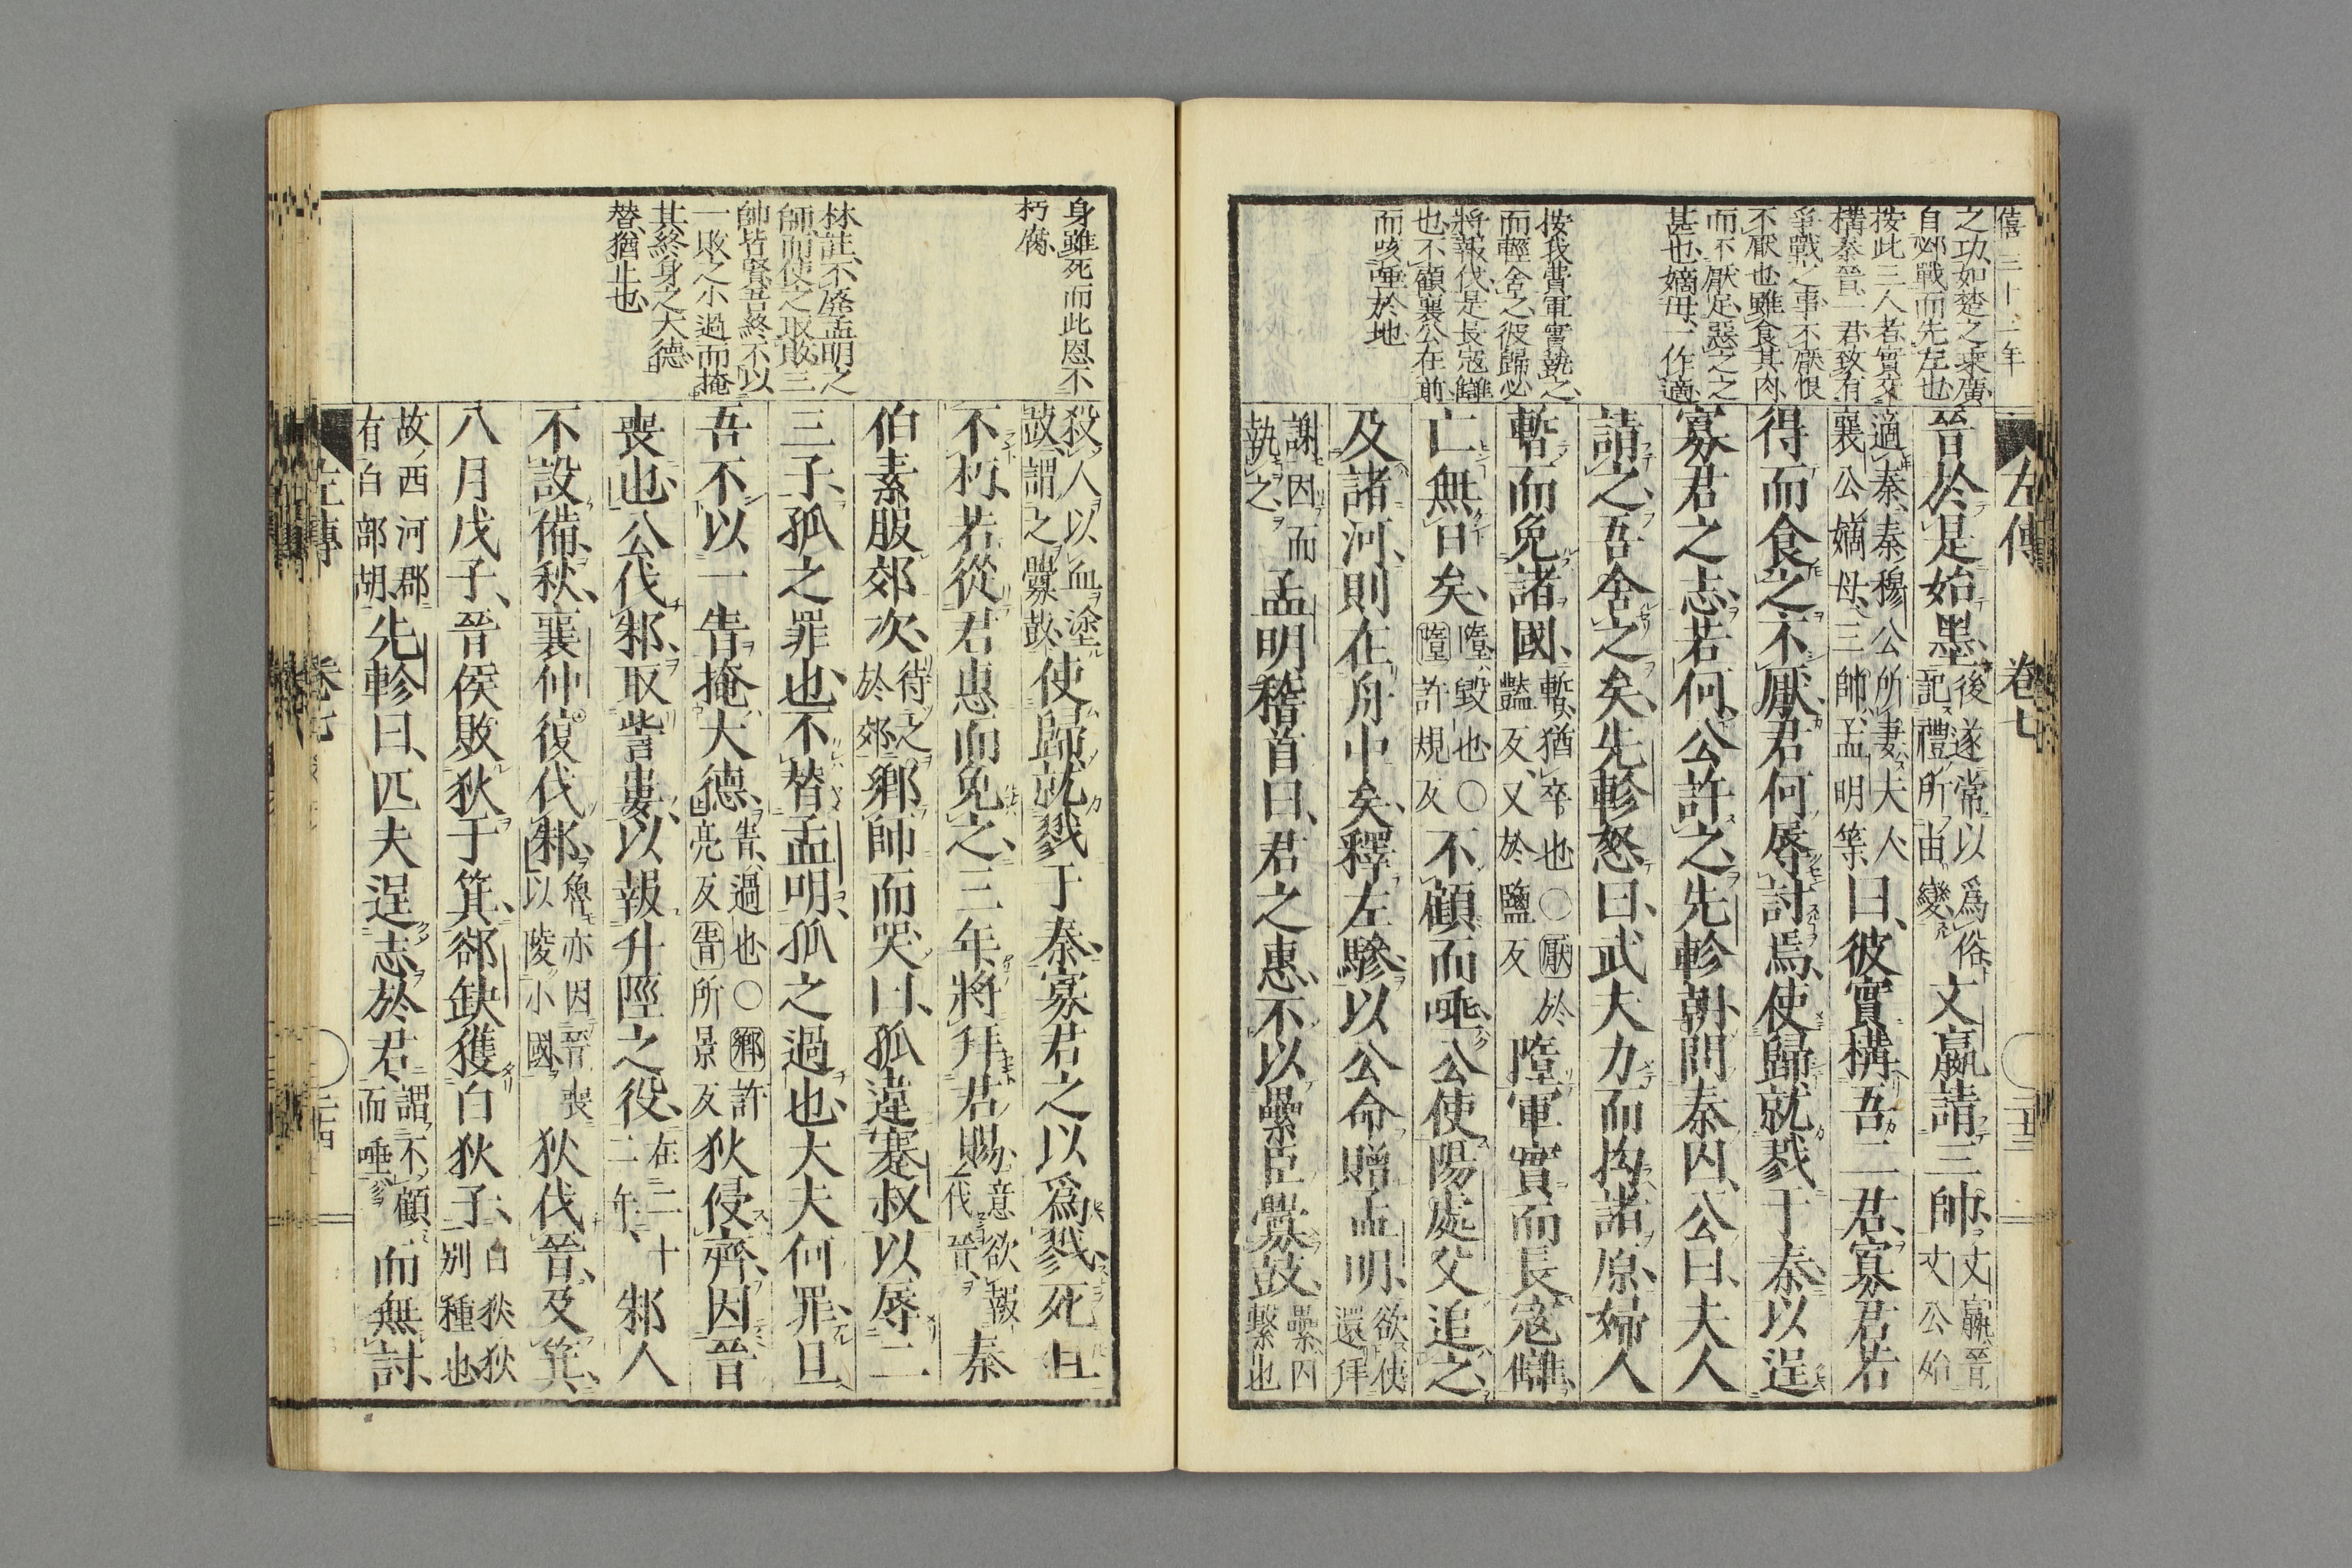 左傳 卷七
之功、如楚之乘廣、
自邲戰而先左也、
按此三人者實交
構秦晉二君致有
爭戰之事、不厭恨
不厭也、雖食其肉、
而不厭足、惡之之
甚也、嫡母、一作適、
按我費軍實執之、
而輕舍之、彼歸必
將報伐、是長寇讎
也、不顧襄公在前、
而咳唾於地、
晉於是始墨、後遂常以爲俗、記禮所由變、文嬴請三帥、文嬴、晉文公始
適秦、秦穆公所妻夫人、襄公嫡母、三帥、孟明等、曰、彼實構吾二君、寡君若
得而食之、不厭、君何辱討焉、使歸就戮于秦、以逞
寡君之志、若何、公許之、先軫朝、問秦囚、公曰、夫人
請之、吾舍之矣、先軫怒曰、武夫力而拘諸原、婦人
暫而免諸國、暫、猶卒也○厭於豔反又於鹽反墮軍實而長寇讎、
亡無日矣、墮、毀也○墮許規反不顧而唾、公使陽處父追之、
及諸河、則在舟中矣、釋左驂、以公命贈孟明、欲使還拜
謝、因而執之、孟明稽首曰、君之惠、不以纍臣釁鼓、纍、囚繫也
身雖死而此恩不
朽腐、
林註、不廢孟明之
師而使之取敗、三
帥皆賢、吾終不以
一敗之小過而掩
其終身之大德、
替、猶止也、
殺人以血塗鼓、謂之釁鼓、使歸就戮于秦、寡君之以爲戮、死且
不朽、若從君惠而免之、三年、將拜君賜、意欲報伐晉、秦
伯素服郊次、待之於郊鄉師而哭、曰、孤違蹇叔以辱二
三子、孤之罪也、不替孟明、孤之過也、大夫何罪、且
吾不以一眚掩大德、眚、過也○鄉許亮反眚所景反狄侵齊、因晉
喪也、公伐邾、取訾婁、以報升陘之役、在二十二年、邾人
不設備、秋、襄仲復伐邾、魯亦因晉喪以陵小國、狄伐晉、及箕、
八月戊子、晉侯敗狄于箕、郤缺獲白狄子、白狄、狄別種也、
故西河郡有白部胡、先軫曰、匹夫逞志於君、謂不顧而唾、而無討、
左傳 卷七